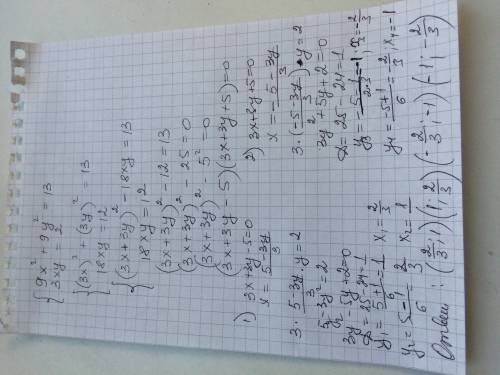 { 9x² + 9y² = 13
3xy = 2
{ (3x)² + (3y)² = 13
18xy = 12
{ (3x+3y)² - 18xy = 13
18xy = 12
(3x+3y)² - 12 = 13
(3x+3y)² - 25 = 0
(3x+3y)² - 5² = 0
(3x+3y-5)(3x+3y+5)=0
1) 3x+3y-5=0
x = (5-3y)/3
3·(5-3y)/3·y=2
5y-3y²=2
3y²-5y+2=0
D=25-24=1
y₁=(5+1)/6=1 x₁=2/3
y₂=(5-1)/6=2/3 x₂=1
2) 3x+3y+5=0
x = (-5-3y)/3
3·(-5-3y)/3·y=2
3y²+5y+2=0
D=25-24=1
y₃=(-5-1)/(2·3)=-1; x₃=-2/3
y₄=(-5+1)/6=-2/3; x₄=-1
Ответ: (2/3;1)(1;2/3)(-2/3;-1)(-1;-2/3)